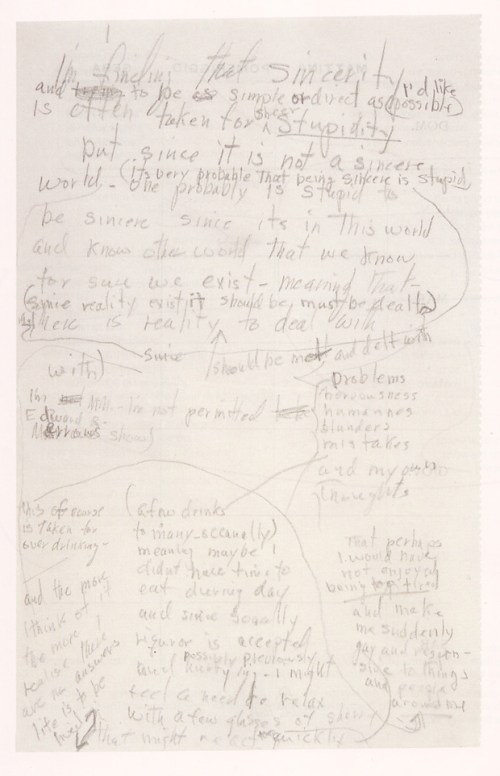 I'm finding that sincerity
and trying to be as simple or direct as (possible) I'd like
is often taken for sheer stupidity
but since it is not a sincere
world - (it's very probable that being sincere is stupid)
one probably is stupid to
be sincere since its in this world
and know other world that we know
for sure we exist - meaning that -
(since reality exist it should be must be dealt)
there is reality to deal with
since (should be met and delt with
with)
problems
nervousness
humannes
blunders
mistakes
and my own
thoughts
Im not permitted
Edward R
Murrows show)
this of course
is taken for
over drinking -
and the more
I think of it
the more I
realise there
are no answers
life is to be
lived
(a few drinks
to many occanally)
meaning maybe I
didnt have time to
eat during day
and since socially
is accepted
and possibly previously
I might
feel a need to relax
with a few glasses of sherry
that might react quickly
That perhaps
I would have
not enjoyed
being too tired
and make
me suddenly
gay and respon-
sive to things
and people
around me